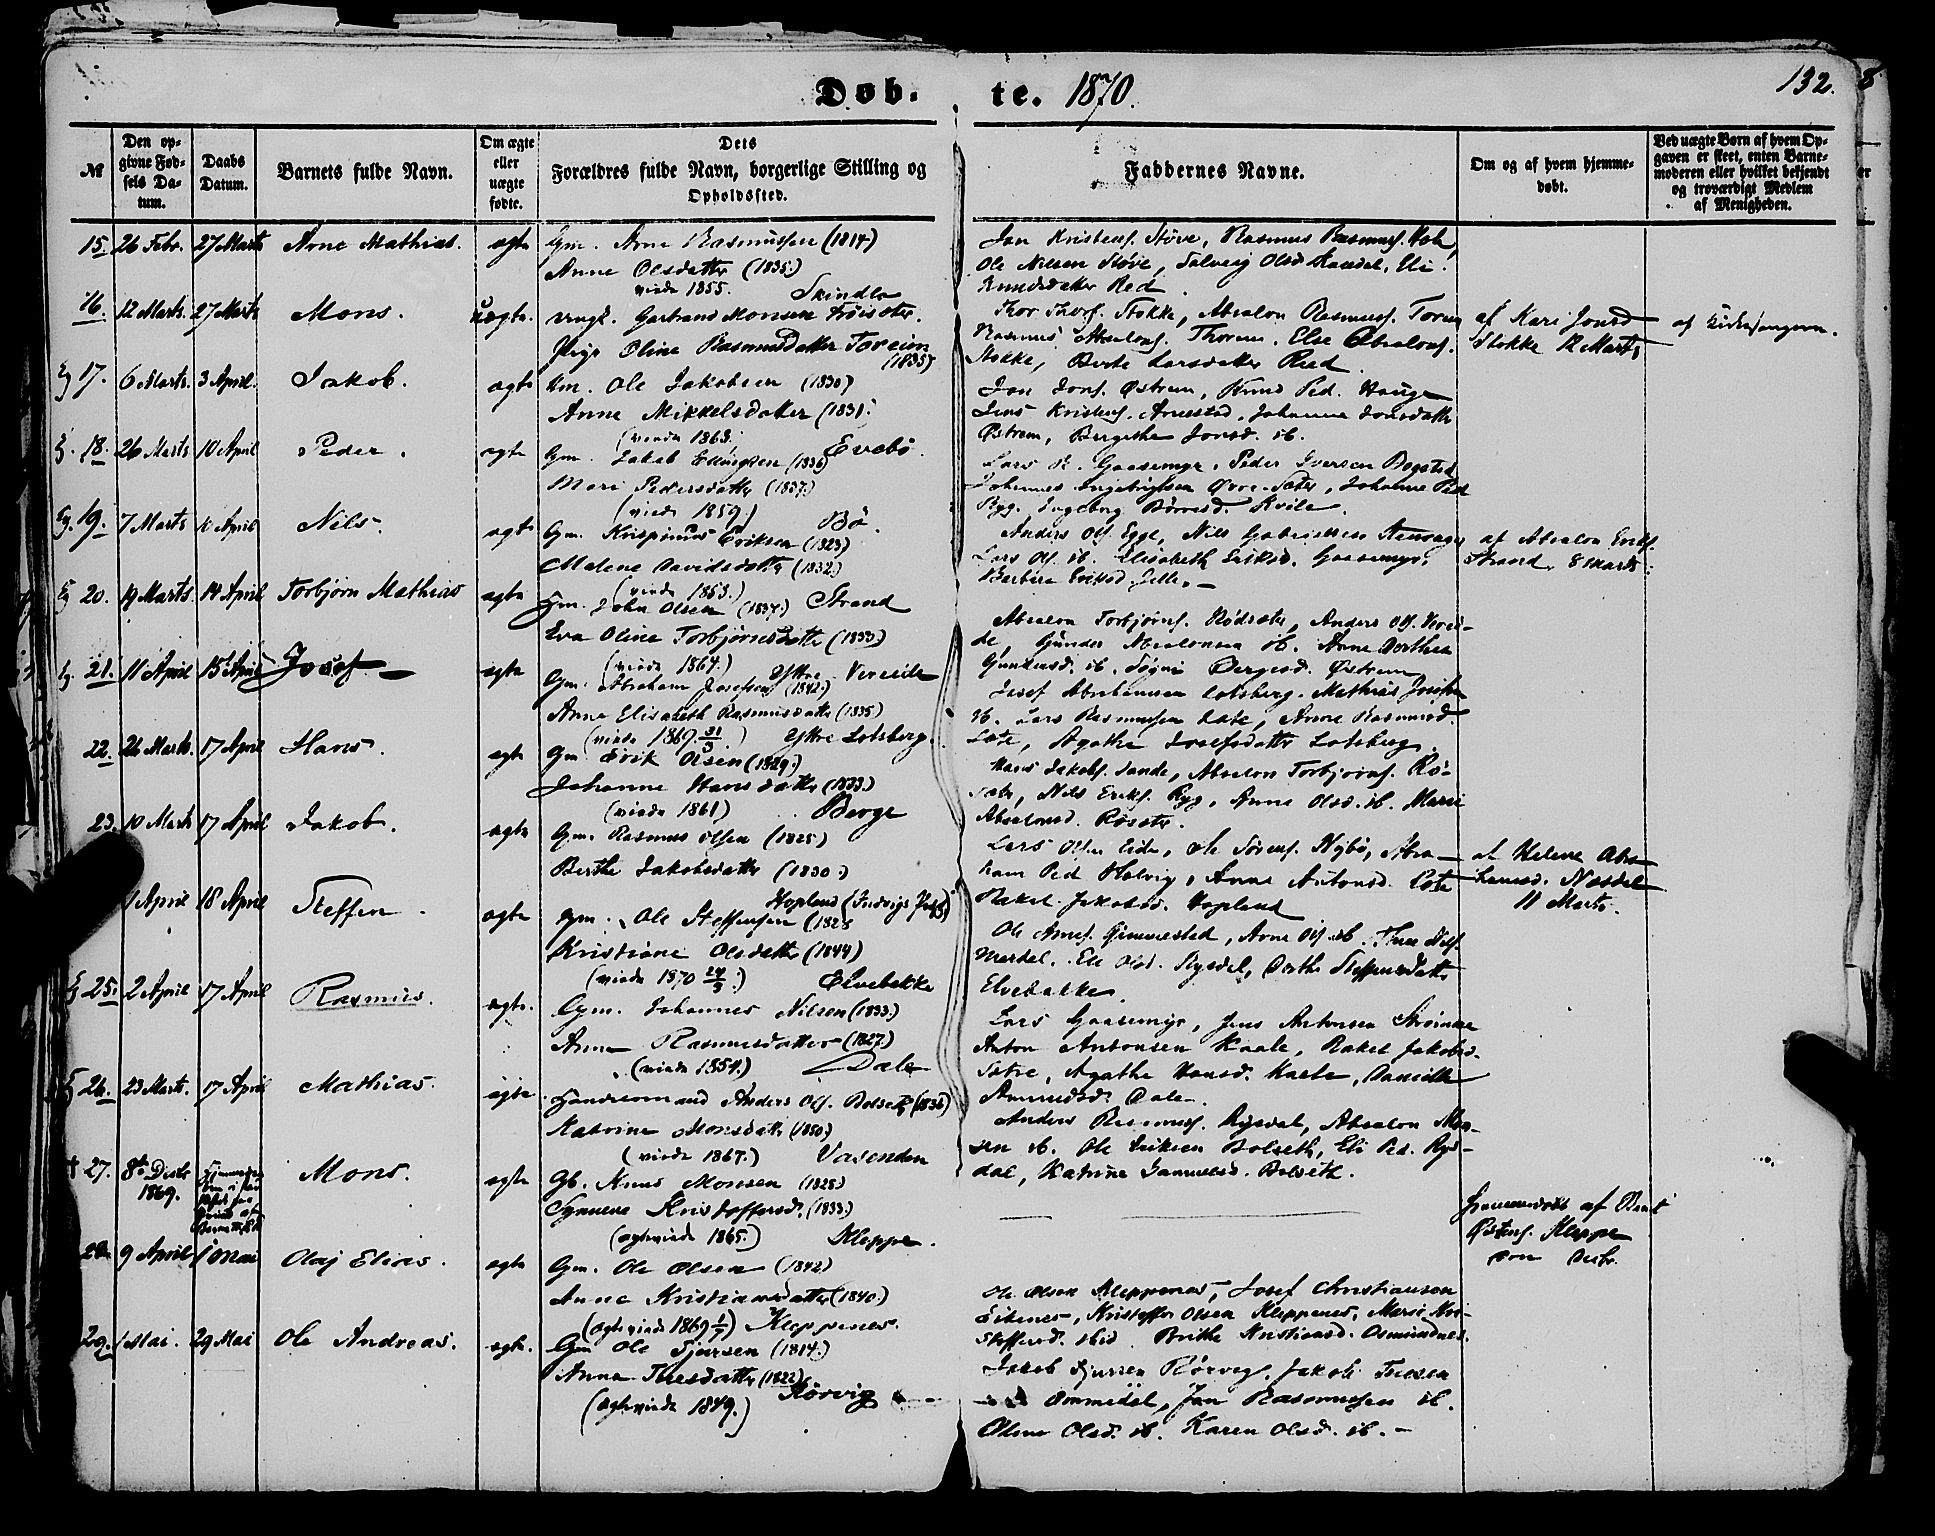 Døb-
te. 1870.
132.
№
Den op-
givne Fød-
sels Da-
tum.
Daabs
Datum.
Barnets fulde Navn.
Om ægte
eller
uægte
fødte.
Dets
Forældres fulde Navn, borgerlige Stilling og
Opholdssted.
Faddernes Navne.
Om og af hvem hjemme-
døbt.
Ved uægte Børn af hvem Op-
gaven er skeet, enten Barne-
moderen eller hvilket bekjendt
og troværdigt Medlem
af Menigheden.
15 26 Febr. 27 Marts Arne Mathias. ægte Gm. Arne Rasmussen (1814)
Anne Olsdatter (1835.)
viede 1855. Skindlo
Jon Kristens. Støve, Rasmus Rasmuss.
Ole Nilsen Støve, Solveig Olsd. Eli
Knudsdatter Red
16. 12 Marts. 27 Marts Mons. uægte. ungk. Monsen
Pige Oline Rasmusdatter Toreim
(1835)
Thor Thors. Stokke, Absalon Rasmuss.
Rasmus Absalons. Else Absalons.
Stokke, Berte Larsdatter Red.
af Kari Jonsd
Stokke 12 Marts
af
17. 6 Marts. 3 April. Jakob. ægte Gm. Ole Jakobsen (1830)
Anne Mikkelsdatter (1831.
(viede 1863. Evebø.
Jon Jons. Østrem, Knud Ped. Hauge
Jens Kristens. Arnestad, Johanne Jonsdatter
Østrem, Bergithe Jonsd. ib.
18. 26 Marts 10 April Peder. ægte Gm. Jakob Ellingsen (1836)
Mari Pedersdatter (1837.)
(viede 1859.) Bø.
Lars R. Gaasemyr, Peder Iversen
Johannes Ingebrigtsen Øvre Sæter, Johanne Ped
Ryg. Ingeborg Kvile.
19. 7 Marts April Nils. ægte Gm. Krispinus Eriksen (1823)
Malene Davidsdatter (1832.)
(viede 1853.) Strand
Anders Ols. Egge, Nils Gabrielsen
Lars Ols. ib. Elisabeth Eriksd. Gaasemyr,
Barbara Eriksd.
af Absalon Eriks.
Strand, 8 Marts.
20. 19 Marts. 14 April Torbjørn Mathias ægte Hm. John Olsen (1834.)
Eva Oline Torbjørnsdatter (1833.)
(viede 1864.) Yttre Vereide
Absalon Torbjørns. Rødsæter, Anders Ols. Verei-
de, Gunder Absalonsen ib. Anne Dorthea
Gundersd. ib. Østrem
21. 11 April 15' April Josef ægte Gm. Abraham Josefsen (1842.)
Anne Elisabeth Rasmusdatter (1835)
(viede 1869.) Yttre Lotsberg.
Josef Abrahamsen Lotsberg. Mathias Josefsen
ib. Lars Rasmussen Lote, Anne Rasmusd.
Lote, Agathe Josefsdatter Lotsberg.
22. 26 Marts. 17 April Hans. ægte Gm. Erik Olsen (1829.)
Johanne Hansdatter (1833.)
(viede 1861) Berge
Hans Jakobs. Sande, Absalon Torbjørns. Rø-
sæter, Nils Eriks. Ryg, Anne Olsd. ib. Marie
Absalonsd. Røsæter.
23. 10 Marts 17 April Jakob. ægte Gm. Rasmus Olsen (1825)
Berthe Jakobsdatter (1830.)
Hopland (Indvigs
Lars Olsen Eide, Ole Sørens. Nybø, Abra-
ham Ped Holvig, Anne Antonsd. Lote
Rakel Jakobsd. Hopland
af Helene Abra-
hamsd. Nesdal
11 Marts.
April 18 April Steffen. ægte Gm. Ole Steffensen (1828
Kristiane Olsdatter (1844)
(viede 1870) Elvebakke
Ole Arnes. Gimmestad, Arne Ols ib.
Eli Olsd. Rysdal, Dorthe Steffensdatter
Elvebakke.
25. 2 April 17 April Rasmus. ægte. Gm. Johannes Nilsen (1833.)
Anne Rasmusdatter (1827.)
(viede 1854.) Dale
Lars Gaasemyr, Jens Antonsen
Anton Antonsen Kaale, Rakel Jakobsd.
Sætre, Agathe Hansd. Danielle
Amundsd. Dale.
26. 23 Marts. 17 April Mathias. ægte. Huusmand Anders Ols. Bolseth (1836)
Katrine Monsdatter (1850)
(viede 1867.) Vasenden
Anders Rasmuss. Rysdal, Absalon Mon-
sen ib. Ole Eriksen Bolseth, Eli Ped. Rys-
dal, Katrine Samuelsd. Bolseth.
† 27. 8de Decbr
1869. Mons. ægte Gb. Knud Monsen (1828)
Synneve Kristoffersd. (1833.)
(ægteviede 1865.) Kleppe.
Hjemmedøbt af Berit
Østens. Kleppe
Decbr.
28. 9 April 1' Mai Olaj Elias. ægte Gm. Ole Olsen (1842)
Anne Kristiansdatter (1840.)
(ægteviede 1869) Kleppenes.
Ole Olsen Kleppenes, Josef Christiansen
Eitenes, Kristoffer Olsen Kleppenes, Marie Kri-
stoffersd. ibid. Brithe Kristiansd. Osmundnes.
29. 1 Mai. 29 Mai Ole Andreas. ægte. Gm Ole Sjursen (1814.)
Anne Thuesdatter (1822)
(ægteviede 1849.) Rørvig
Jakob Sjursen Rørvig, Jakob Tuesen
Ommedal, Jon Rasmussen ib.
Oline Olsd. ib. Karen Olsd. ib.